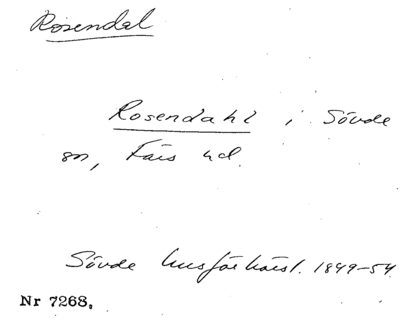 Rosendal
Rosendahl i Sövde
sn, Färs hd.
Sövde husförhörsl. 1849-54
Nr 7268.